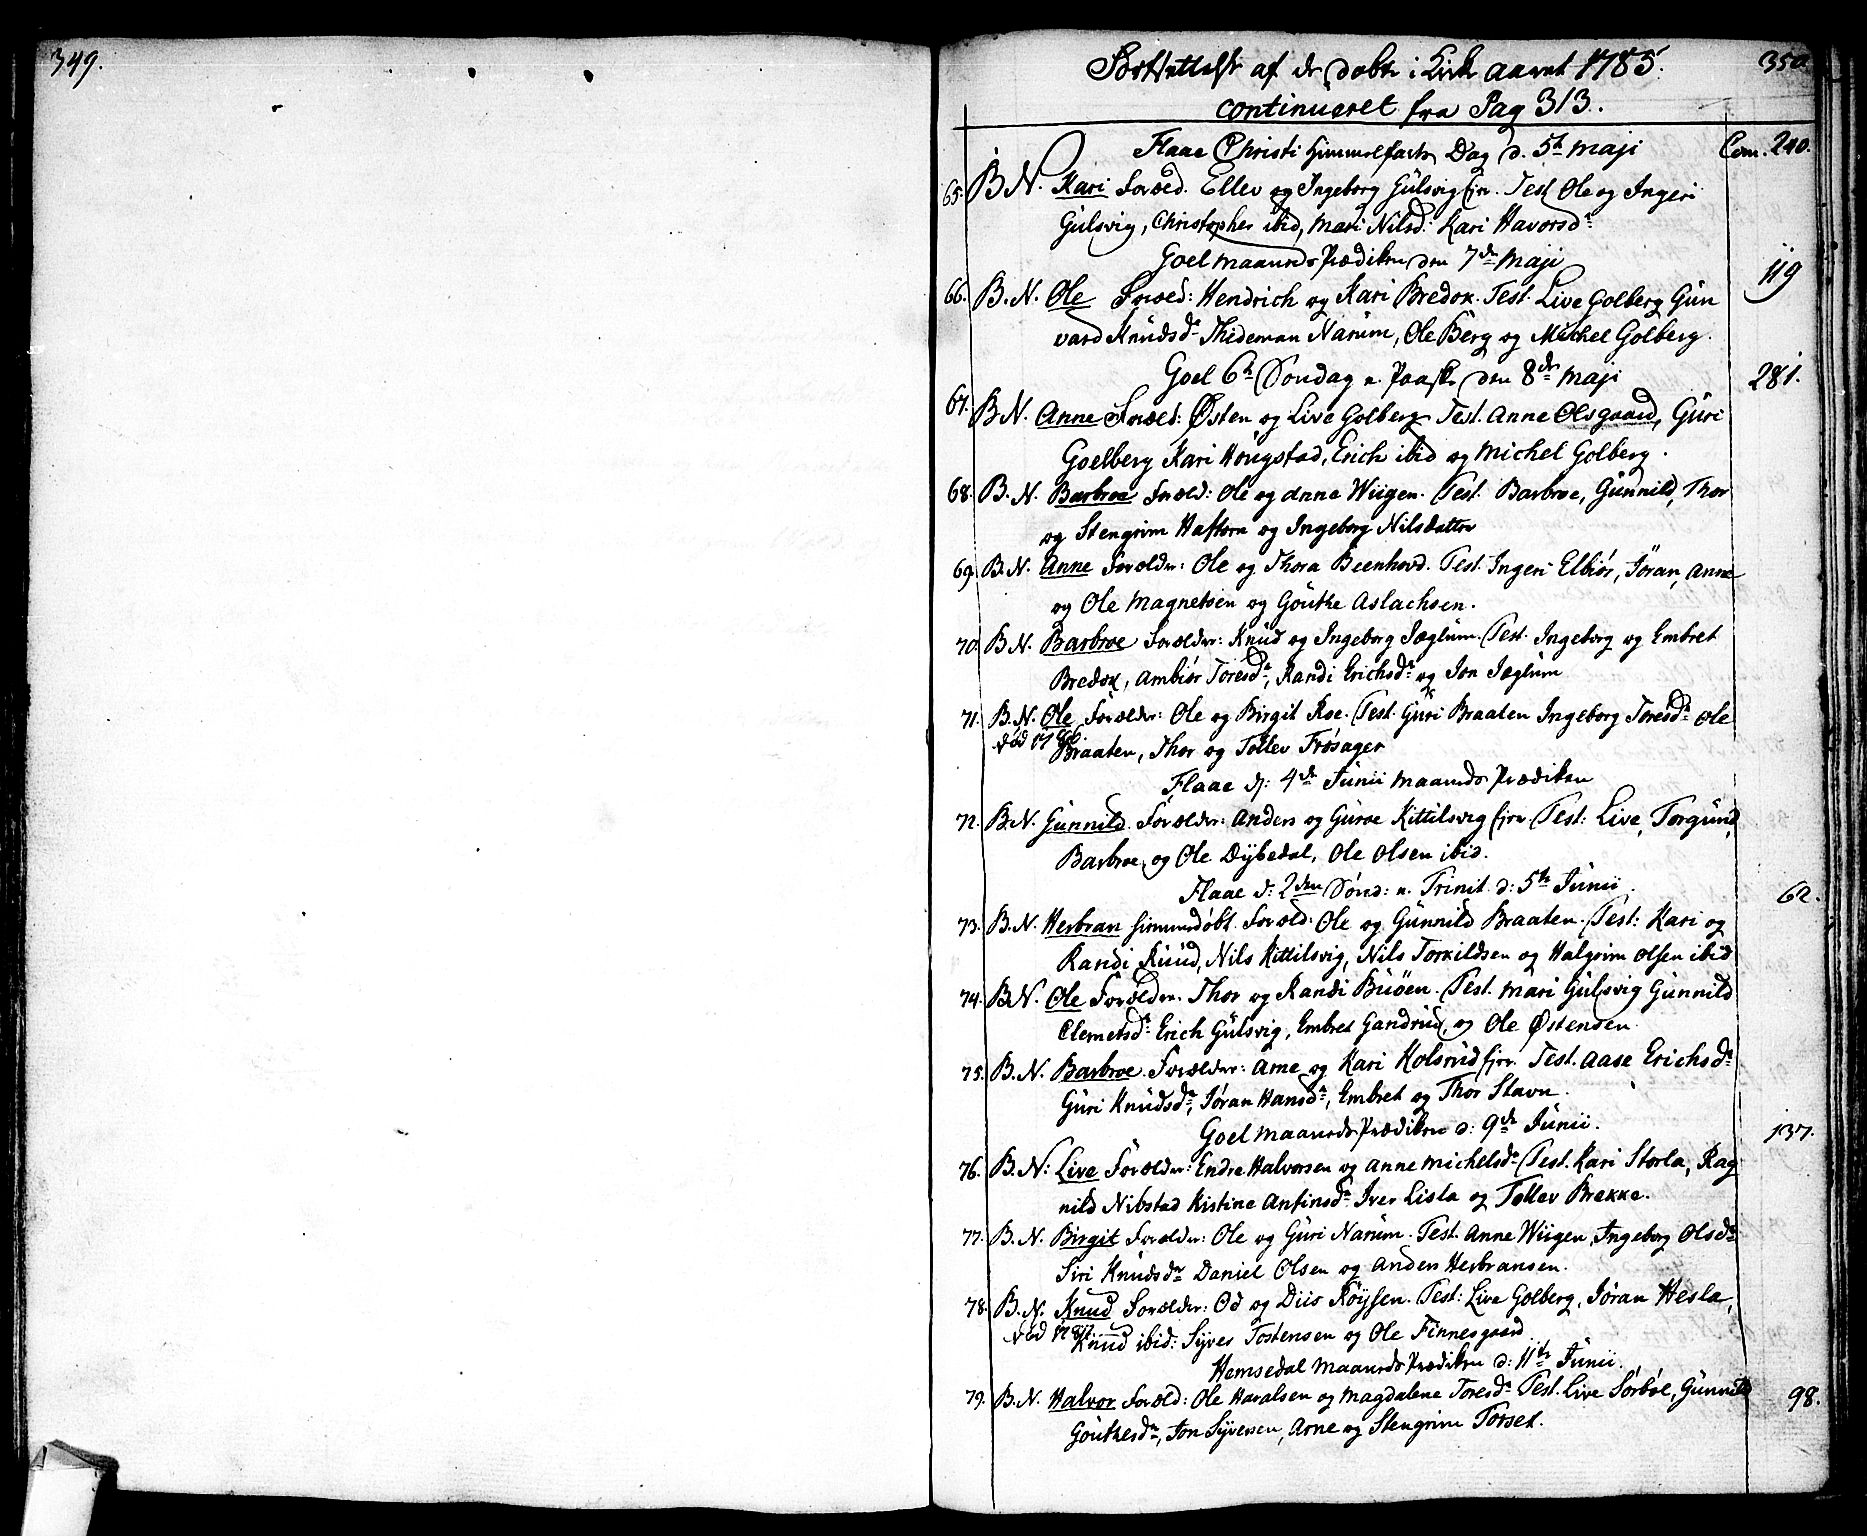 349.
350.
Fortsættelse af de døbte i Kirke aaret 1785.
continueret fra Pag 313.
Flaae Christi himmelfarts Dag d. 5te maji Com. 240.
65. B N. Kari Foræld. Ellev og Ingeborg Gulsvig fjer. Test Ole og Ingeri
Gulsvig, Christopher ibid, Mari Nilsd: Kari Havorsdr
Goel maaneds Prædiken den 7de Maji 119
66. B. N. Ole Foræld: Hendrich og Kari Bredok. Test. Live Golberg Gun
vard Knudsdr Thideman Narum, Ole Berg og Michel Golberg.
Goel 6te Søndag e. Paaske den 8de maji 281.
67. B N. Anne Foræld: Østen og Live Golberg Test. Anne Olsgaard, Guri
Goelberg Kari Høugstad, Erich ibid og Michel Golberg.
68. B. N. Barbroe Foræld: Ole og Anne Wiigen. Test. Barbroe, Gunnild, Thor
og Stengrim Haftorn og Ingeborg Nilsdatter
69. B. N. Anne Forælder: Ole og Thora Beenhovd. Test. Ingeri Elbiør, Jøran, Anne
og Ole Magnetsen og Goutke Aslachsen.
70. B N. Barbroe Forælder: Knud og Ingeborg Jæglum. Test. Ingeborg og Embret
Bredok, Ambiør Toresdr, Randi Erichsdr og Jon Jæglum
71. B. N. Ole Forælder: Ole og Birgit Roe. Test. Guri Braaten Ingeborg Toresdr Ole
død 1786. Braaten, Thor og Tollev Frøsager
Flaae d: 4de Junii maaneds Prædiken
72. B. N. Gunnild. Forælder: Anders og Guroe Kittilsvig fjer Test: Live, Torgund,
Barbroe, og Ole Dybedal, Ole Olsen ibid.
Flaae d: 2den Sønd: e. Trinit. d: 5te Junii. 62.
73. B. N. Herbran hiemmedøbt. Foræld: Ole og Gunnild Braaten. Test: Kari og
Randi Ruud, Nils Kittilsvig, Nils Torkildsen og Halgrim Olsen ibid
74. B N. Ole Forælder. Thor og Randi Buøen. Test. Mari Gulsvig Gunnild
Clemetsdr Erich Gulsvig, Embret Gandrud, og Ole Østensen.
75. B. N. Barbroe. Forælder: Arne og Kari Kolsrud fjer. Test. Aase Erichsdr
Guri Knudsdr, Jøran Hansdr, Embret og Thor Stavn.
Goel maaneds Prædiken d: 9de Junii. 137.
76. B. N: Live Forælder: Endre Halvorsen og Anne Michelsdr Test. Kari Storla, Rag
nild Nibstad Kistine Anfinsdr Iver Lisla og Tollev Brekke.
77. B. N. Birgit Forælder: Ole og Guri Narum. Test. Anne Wiigen, Ingeborg Olsdr
Siri Knudsdr Daniel Olsen og Anders Herbransen.
78. B. N. Knud Forælder: Od og Dus Røysen. Test: Live Golberg, Jøran Hesla,
død 1787. Knud ibid: Syver Tostensen og Ole Finnesgaard
Hemsedal maaneds Prædiken d: 11te Junii.
79. B. N. Halvor Foræld: Ole Haralsen og Magdalene Toresdr Test. Live Sørbøe, Gunnild 98.
Goutkesdr, Jon Syversen, Arne og Stengrim Torset.